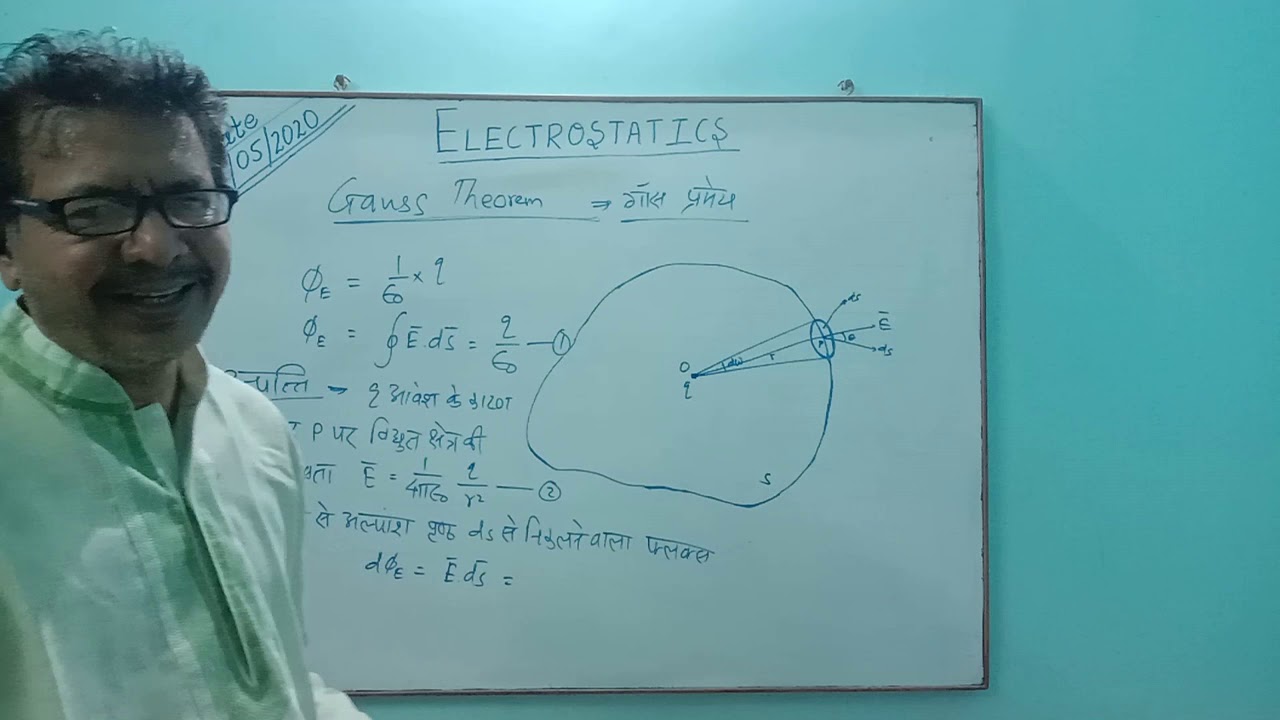 /05/2020
ELECTROSTATICS
Gauss Theorem ⇒ गॉस प्रमेय
ϕE = 1/ϵ0 × q
ϕE = ∮ Ē.ds̄ = q/ϵ0 — ①
→ q आवेश के कारण
P पर विद्युत क्षेत्र की
Ē = 1/4πϵ0 q/r² — ②
से अल्पांश पृष्ठ ds से निकलने वाला फ्लक्स
dϕE = Ē.ds̄ =
ds
Ē
θ
ds
P
r
dω
O
q
S